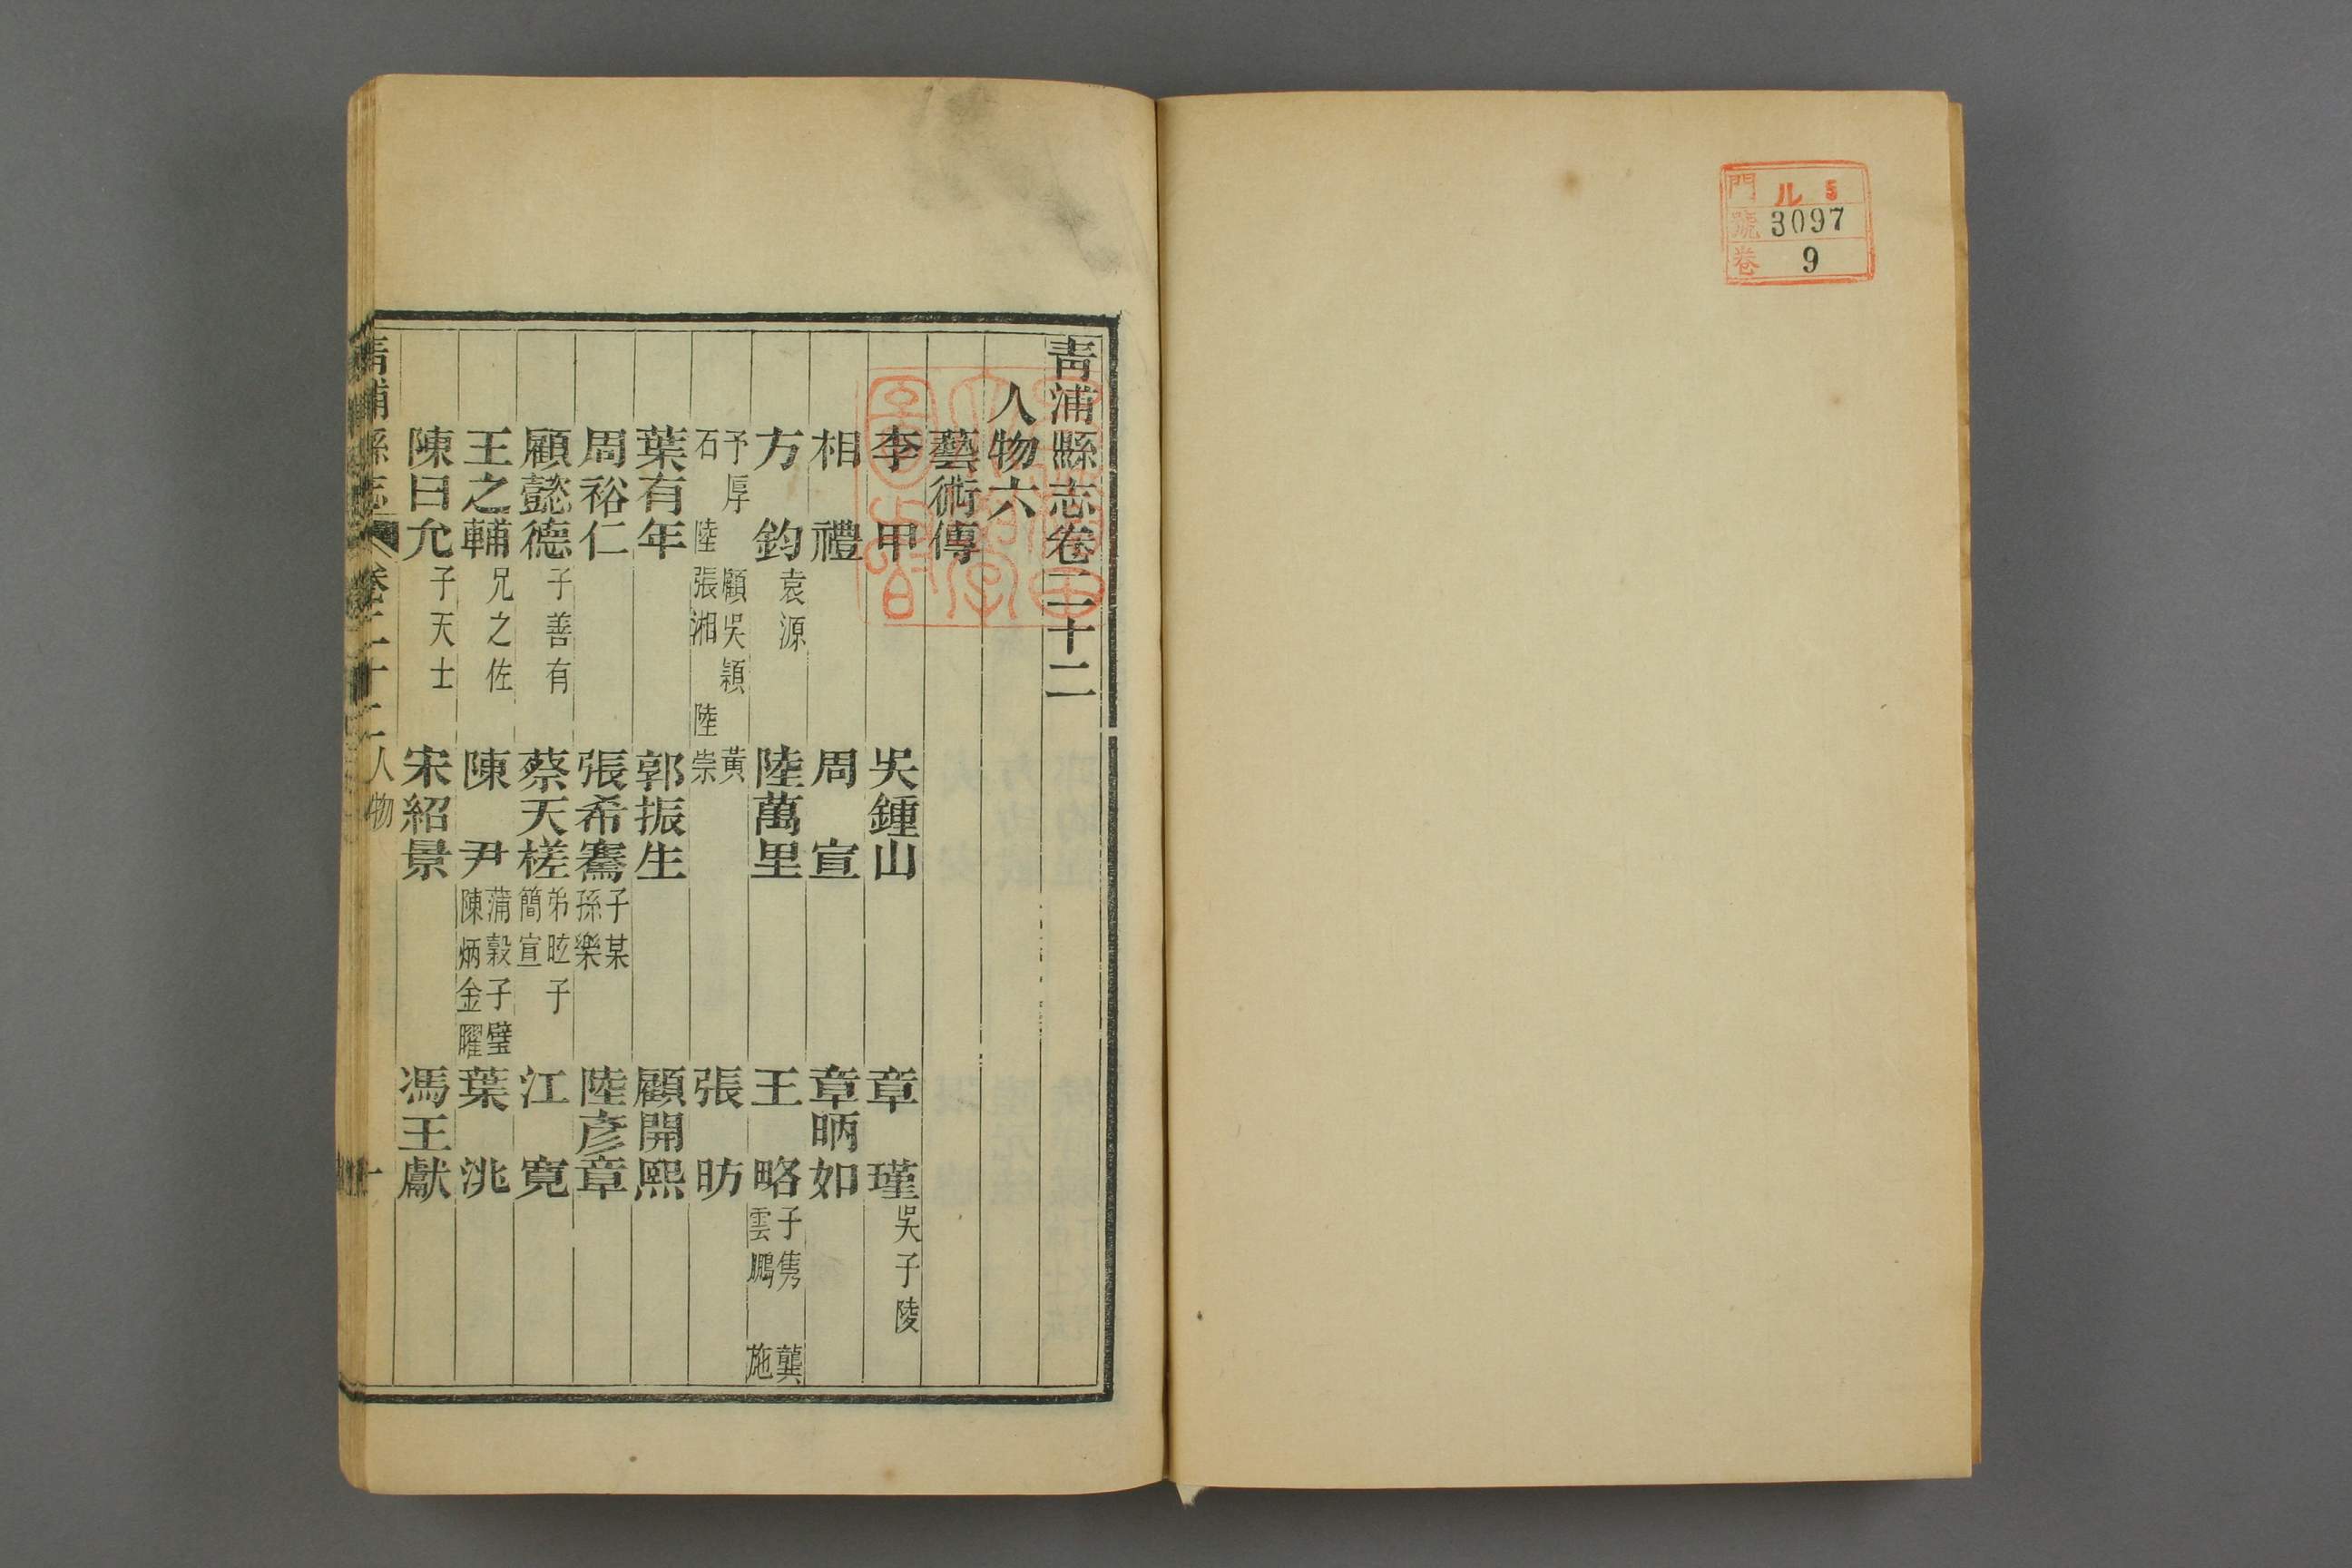 門 ル 5
號 3097
卷 9
青浦縣志卷二十二
人物六
藝術傳
李甲 吳鍾山 章瑾 吳子陵
相禮 周宣 章昞如
方鈞 袁源 陸萬里 王略 子雋 龔
雲鵬 施
予厚 顧吳穎 黃
石 陸張湘 陸崇 張昉
葉有年 郭振生 顧開熙
周裕仁 張希騫 子某
孫樂 陸彥章
顧懿德 子善有 蔡天槎 弟昡子
簡宣 江寬
王之輔 兄之佐 陳尹 蒲穀子璧
陳炳金曜 葉洮
陳曰允 子天士 宋紹景 馮王獻
青浦縣志 卷二十二 人物 一